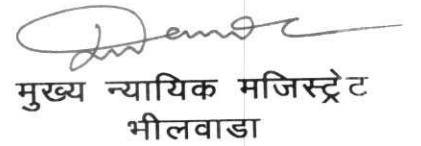 मुख्य न्यायिक मजिस्ट्रेट
भीलवाडा